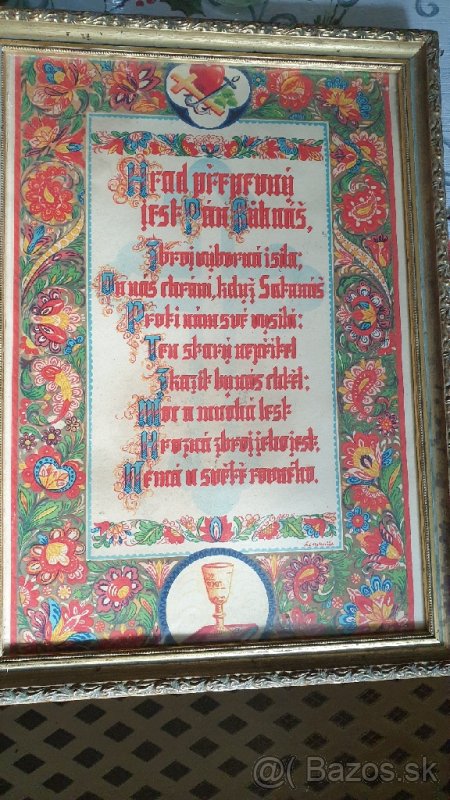 Hrad přepevný
jest Pán Bůh náš,
Zbroj výborná i síla;
On nás chrání, když Satanáš
Proti nám své vysílá:
Ten starý nepřítel
Zkazit by nás chtěl:
Moc a mnohá lest
Hrozná zbroj jeho jest,
Nemá v světě rovného.
@ Bazos.sk